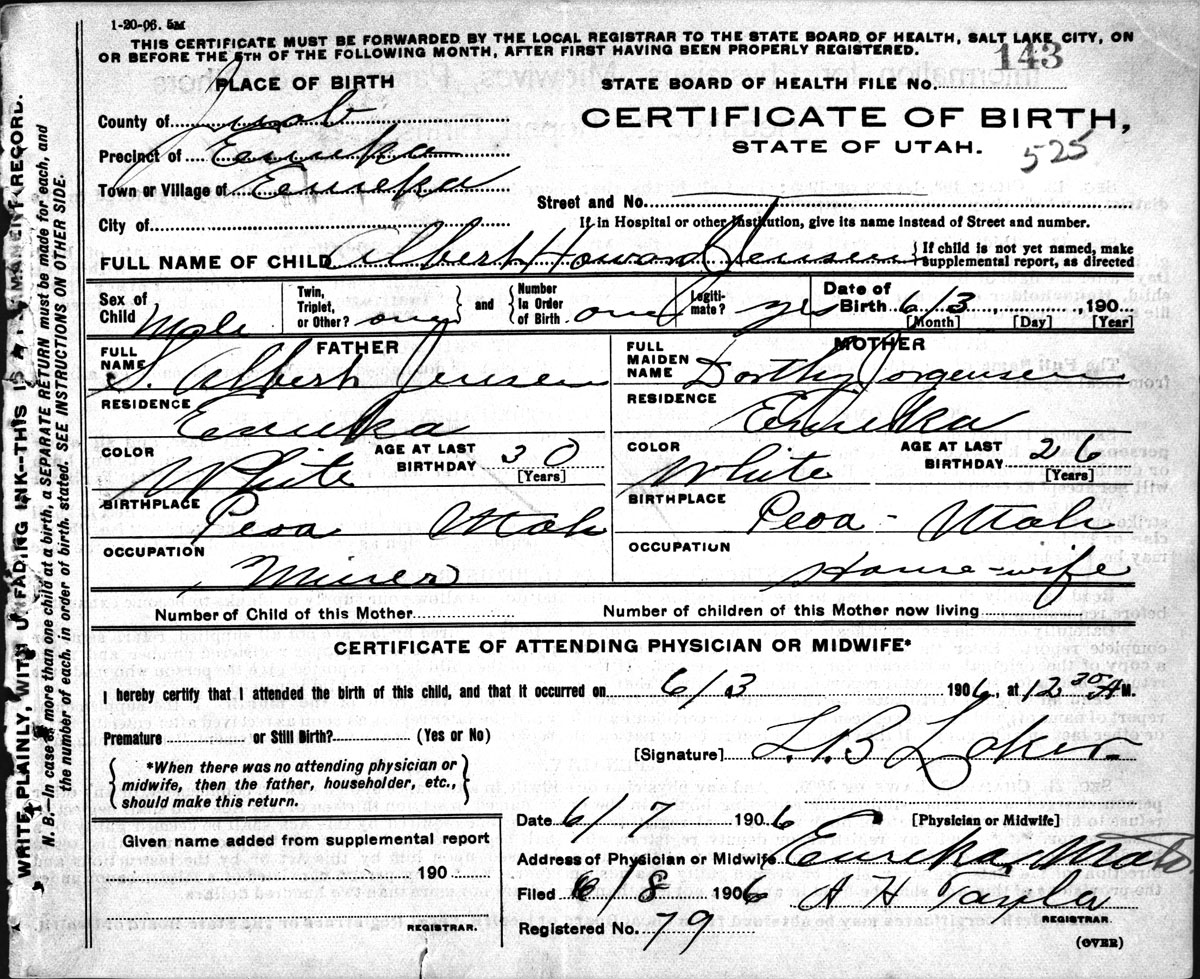 1-20-06. 5M
THIS CERTIFICATE MUST BE FORWARDED BY THE LOCAL REGISTRAR TO THE STATE BOARD OF HEALTH, SALT LAKE CITY, ON
OR BEFORE THE 5TH OF THE FOLLOWING MONTH, AFTER FIRST HAVING BEEN PROPERLY REGISTERED.
143
PLACE OF BIRTH
STATE BOARD OF HEALTH FILE NO.
County of Juab
CERTIFICATE OF BIRTH,
Precinct of Eureka
STATE OF UTAH.
525
Town or Village of Eureka
Street and No.
City of
If in Hospital or other Institution, give its name instead of Street and number.
FULL NAME OF CHILD Albert Howard Jensen
If child is not yet named, make
supplemental report, as directed
Sex of Child Male
Twin, Triplet, or Other? one and Number In Order of Birth. one
Legitimate? yes
Date of Birth 6/3, 190
[Month] [Day] [Year]
FATHER
MOTHER
FULL NAME S. Albert Jensen
FULL MAIDEN NAME Dorthy Jorgensen
RESIDENCE Eureka
RESIDENCE Eureka
COLOR White AGE AT LAST BIRTHDAY 30 [Years]
COLOR White AGE AT LAST BIRTHDAY 26 [Years]
BIRTHPLACE Peoa Utah
BIRTHPLACE Peoa - Utah
OCCUPATION Miner
OCCUPATION House-wife
Number of Child of this Mother
Number of children of this Mother now living
CERTIFICATE OF ATTENDING PHYSICIAN OR MIDWIFE*
I hereby certify that I attended the birth of this child, and that it occurred on 6/3 1906, at 12 30 A M.
Premature or Still Birth? (Yes or No)
[Signature]
*When there was no attending physician or
midwife, then the father, householder, etc.,
should make this return.
Date 6/7 1906 [Physician or Midwife]
Address of Physician or Midwife Eureka, Utah.
Given name added from supplemental report
190
Filed 6/8 1906
REGISTRAR.
Registered No. 79
REGISTRAR.
(OVER)
WRITE PLAINLY, WITH UNFADING INK--THIS IS A PERMANENT RECORD.
N. B.--In case of more than one child at a birth, a SEPARATE RETURN must be made for each, and
the number of each, in order of birth, stated. SEE INSTRUCTIONS ON OTHER SIDE.